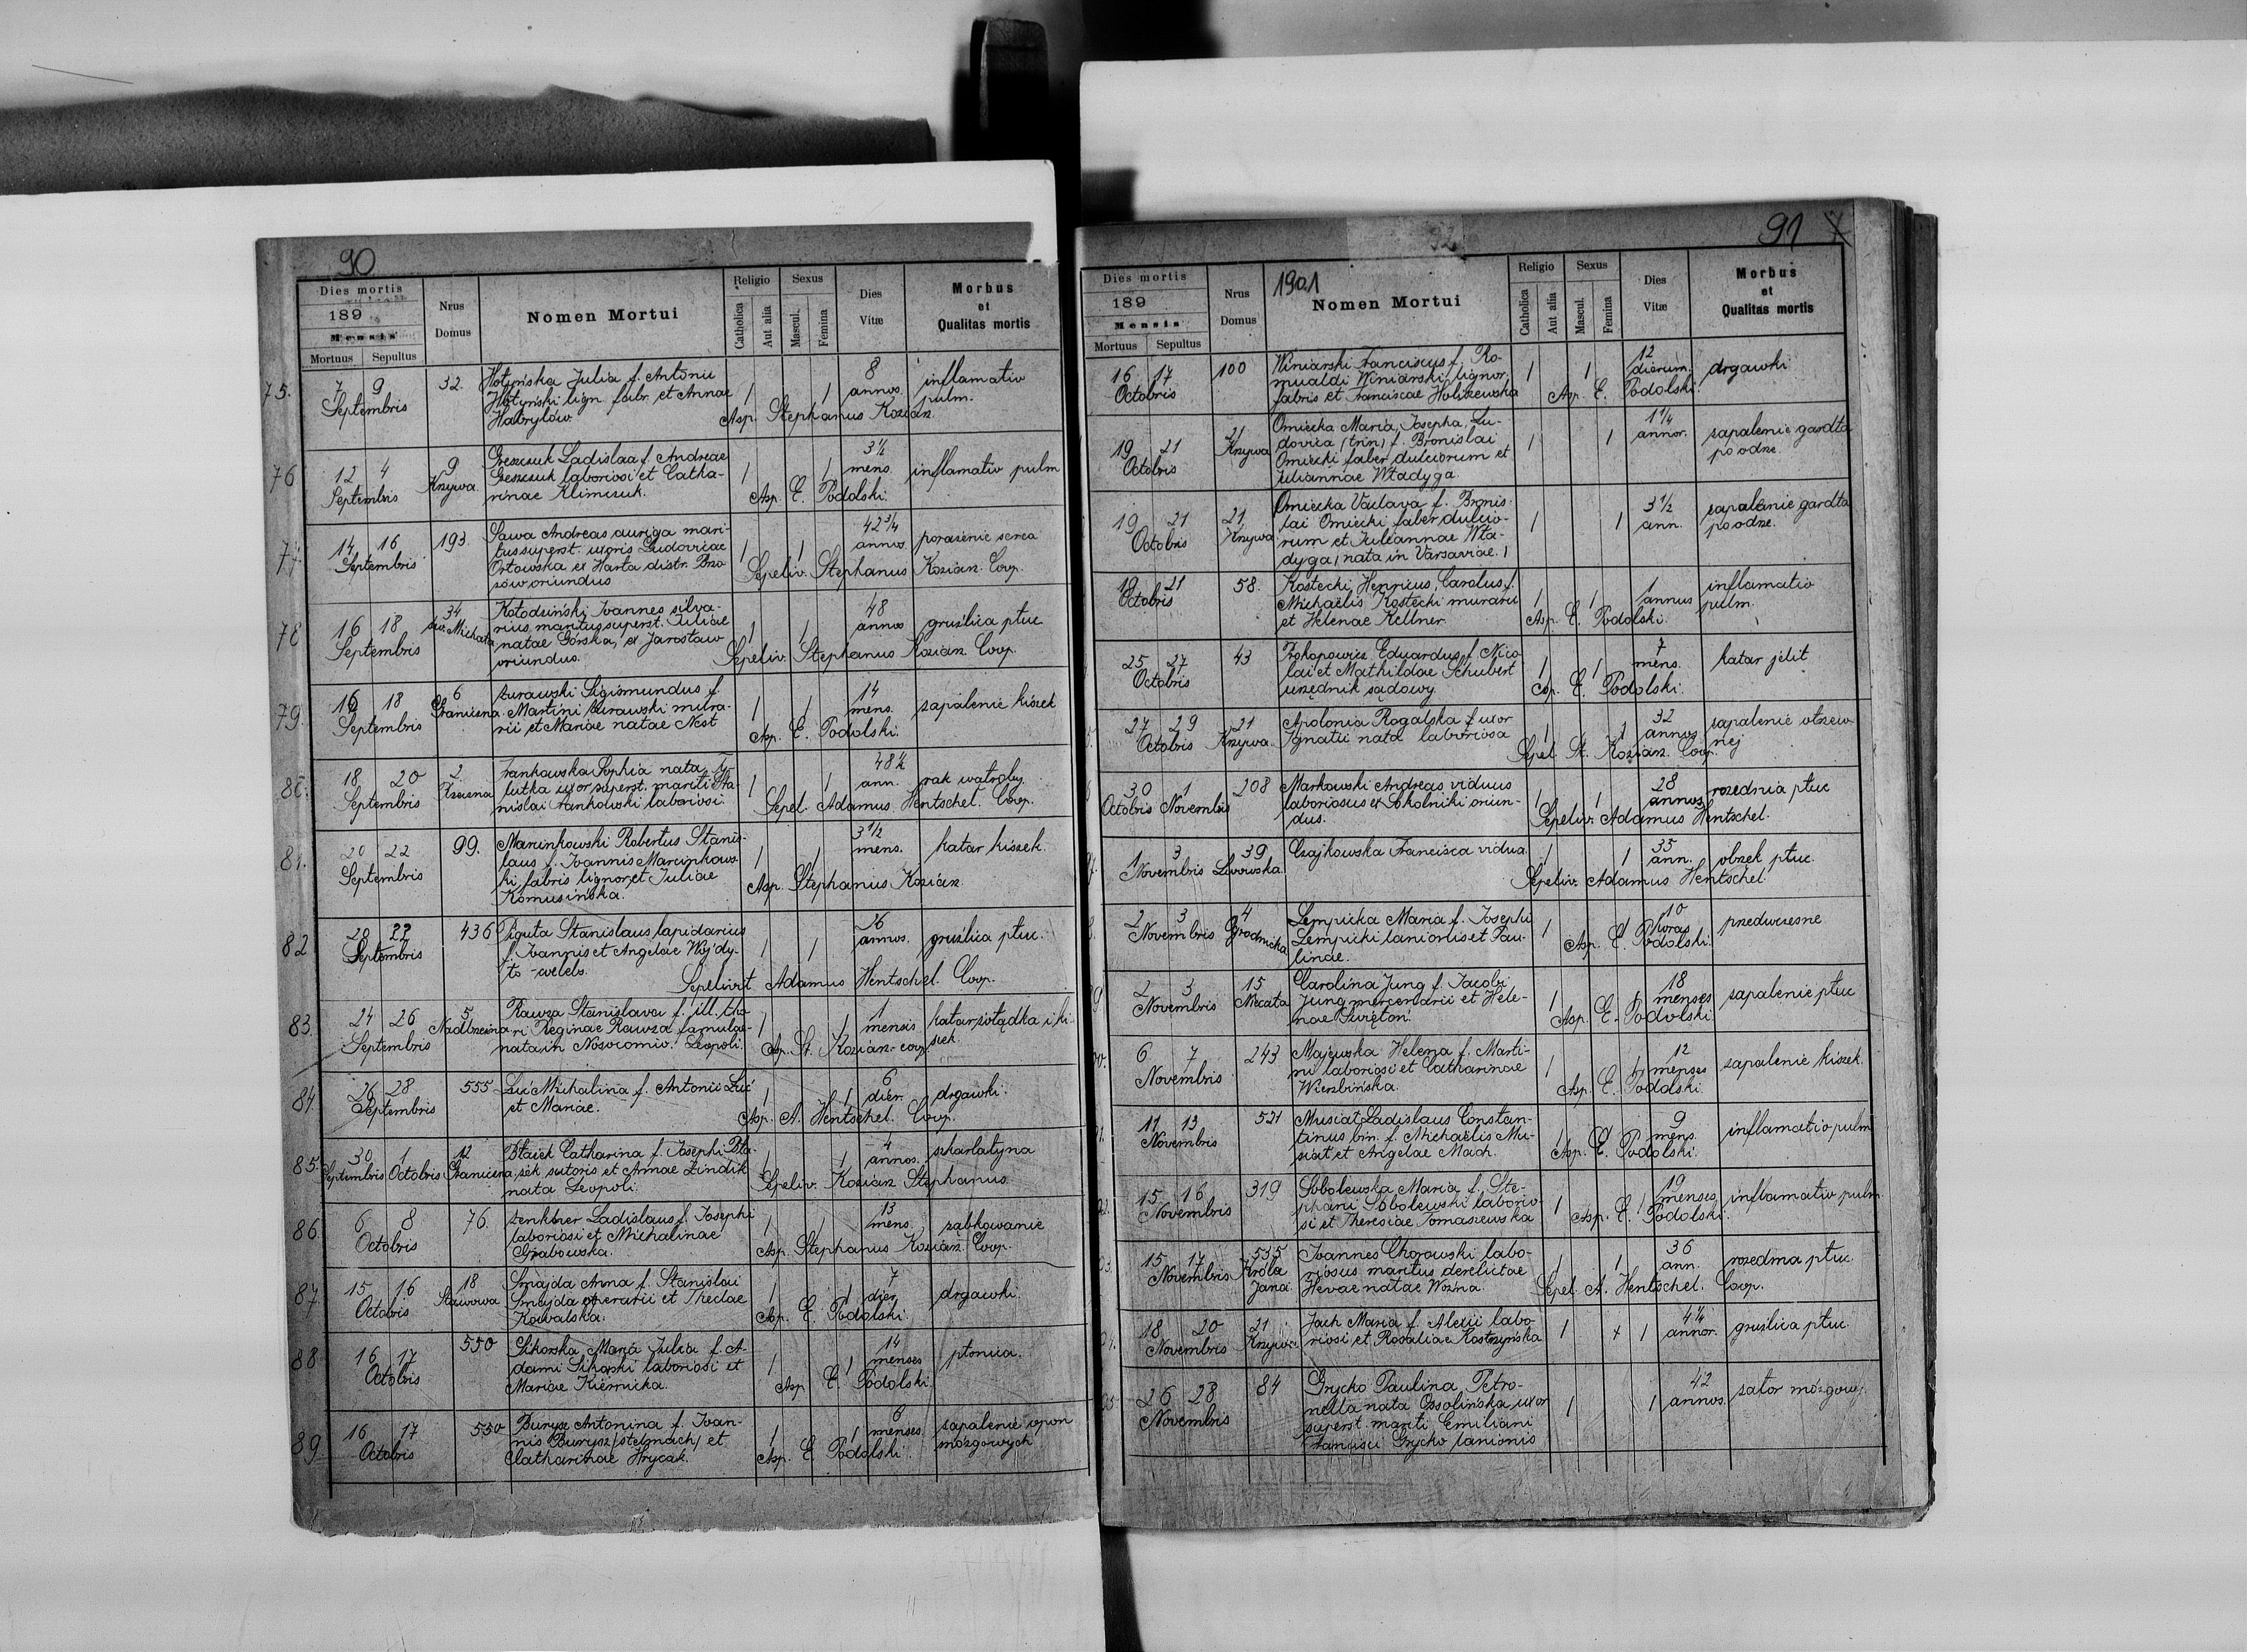 90
Dies mortis
189
Mensis
Mortuus Sepultus
Nrus Domus
Nomen Mortui
Religio
Catholica
Aut alia
Sexus
Mascul.
Femina
Dies Vitæ
Morbus et Qualitas mortis
75. 7 9 Septembris 32. Hotyńska Julia f. Antonii 1 1 8 annos. inflamatio pulm.
Hotyński lign. fabr. et Annae
Habrylów. Asp. Stephanus Kozian.
76 12 4 Septembris 9 Krzywa. Greszczuk Ladislaa f. Andreae 1 1 3½ mens. inflamatio pulm
Greszczuk laboriosi et Catha-
rinae Klimczuk. Asp. E. Podolski.
77. 14 16 Septembris 193. Sawa Andreas auriga mari- 1 1 42¾ annos porażenie serca
tus superst. uxoris Ludovicae
Ortowska ex Harta distr. Brzo
zów oriundus Sepeliv. Stephanus Kozian. Coop.
78 16 18 Septembris 34 św. Michała Kołodziński Joannes silva- 1 1 48 annos gruźlica płuc
rius maritus superst. Juliae
natae Górska, ex Jarosław
oriundus. Sepeliv. Stephanus Kozian. Coop.
79. 16 18 Septembris 6 Graniczna Żurawski Sigismundus f. 1 1 14 mens. zapalenie kiszek
Martini Żurawski mura-
rii et Mariae natae Nest Asp. E. Podolski.
80. 18 20 Septembris 2 Frankowska Sophia nata 1 1 48½ ann. rak wątroby
lutka uxor superst. mariti Sta-
nislai Frankowski laboriosi. Sepel. Adamus Hentschel. Coop.
81. 20 22 Septembris 99. Marcinkowski Robertus Stanis- 1 1 3½ mens. katar kiszek.
laus f. Joannis Marcinkows-
ki fabris lignor. et Juliae
Komusińska. Asp. Stephanus Kozian
82 20 22 Septembris 436 Piguta Stanislaus lapidarius 1 1 26 annos. gruźlica płuc.
f. Joannis et Angelae Wojdy-
ło - caelebs. Sepelivit Adamus Hentschel. Coop.
83. 24 26 Septembris 5 Rawza Stanislava f. ill. tho 1 1 1 mensis katar żołądka i ki-
ri Reginae Rawza famulae szek
nata in Nosocomio. Leopoli. Asp. St. Kozian - coop.
84. 26 28 Septembris 555 Luć Michalina f. Antonii Luć 1 1 6 dier. drgawki.
et Mariae. Asp. A. Hentschel. Coop.
85. 30 Septembris 1 Octobris 12 Graniczna Błażek Catharina f. Josephi Bła- 1 1 4 annos. szkarlatyna
żek sutoris et Annae Zindik
nata Leopoli. Sepeliv. Kozian Stephanus.
86. 6 8 Octobris 76. Zenkner Ladislaus f. Josephi 1 1 13 mens. ząbkowanie
laboriosi et Michalinae
Grabowska. Asp. Stephanus Kozian. Coop.
87 15 16 Octobris 18 Stawowa Smajda Anna f. Stanislai 1 1 7 dier. drgawki.
Smajda operarii et Theclae
Kowalska. Asp. E. Podolski.
88 16 17 Octobris 550 Sikorska Maria Julia f. A- 1 1 14 menses płonica.
dami Sikorski laboriosi et
Mariae Kiernicka. Asp. E. Podolski.
89. 16 17 Octobris 550 Burysz Antonina f. Joan- 1 1 6 menses. zapalenie opon
nis Burysz (stelmach) et mózgowych
Catharinae Hrycak. Asp. E. Podolski.
91
1901
Dies mortis
189
Mensis
Mortuus Sepultus
Nrus Domus
Nomen Mortui
Religio
Catholica
Aut alia
Sexus
Mascul.
Femina
Dies Vitæ
Morbus et Qualitas mortis
16 17 Octobris 100 Winiarski Franciscus f. Ro- 1 1 12 dierum. drgawki
mualdi Winiarski lignor.
fabris et Franciscae Holiszewska Asp. E. Podolski.
19 21 Octobris 21 Krzywa Omiecka Maria, Josepha, Lu- 1 1 1¼ annor. zapalenie gardła
dovica (trin) f. Bronislai po odrze.
Omiecki faber dulciorum et
Juliannae Władyga.
19 21 Octobris 21 Krzywa Omiecka Vaclava f. Bronis- 1 1 3½ ann. zapalenie gardła
lai Omiecki faber dulcio- po odrze.
rum et Juliannae Wła-
dyga, (nata in Varsaviae.)
19 21 Octobris 58. Kostecki Henricus, Carolus f. 1 1 1 annus inflamatio pulm.
Michaëlis Kostecki murarii
et Helenae Kellner. Asp. E. Podolski.
25 27 Octobris 43 Prokopowicz Eduardus f. Nico- 1 1 7 mens. katar jelit
lai et Mathildae Schubert
urzędnik sądowy. Asp. E. Podolski.
27 29 Octobris 21 Krzywa. Apolonia Rogalska f. uxor 1 1 32 annos zapalenie otrzew-
Ignatii nata laboriosa nej
Sepel. St. Kozian. Coop.
30 Octobris 1 Novembris 208 Markowski Andreas viduus 1 1 28 annos rozedma płuc
laboriosus ex Sokolniki oriun-
dus. Sepeliv. Adamus Hentschel.
1 3 Novembris 39 Lwowska. Czajkowska Francisca vidua 1 1 35 ann. obrzęk płuc.
Sepeliv. Adamus Hentschel
2 3 Novembris 4 Grodnicka Lempicka Maria f. Josephi 1 1 10 horas przedwczesne
Lempicki lanionis et Pau-
linae. Asp. E. Podolski.
2 3 Novembris 15 Carolina Jung f. Jacobi 1 1 18 menses zapalenie płuc
Jung mercenarii et Hele-
nae Świętoń. Asp. E. Podolski
6 7 Novembris 243 Majewska Helena f. Marti- 1 1 12 menses zapalenie kiszek.
ni laboriosi et Catharinae
Wierzbińska. Asp. E. Podolski.
11 13 Novembris 521 Musiał Ladislaus Constan- 1 1 9 mens. inflamatio pulm
tinus bin. f. Michaëlis Mu-
siał et Angelae Mach. Asp. E. Podolski.
15 16 Novembris 319 Sobolewska Maria f. Ste- 1 1 19 menses inflamatio pulm.
phani Sobolewski laborio-
si et Theresiae Tomaszewska Asp. E. Podolski.
15 17 Novembris 535 Króla Jana Joannes Chorowski labo- 1 1 36 ann. rozedma płuc
riosus maritus derelictae
Hevae natae Woźna. Sepel. A. Hentschel. Coop.
18 20 Novembris 21 Krzywa Jach Maria f. Alexii labo- 1 + 1 4¼ annor. gruźlica płuc
riosi et Rosaliae Kostrzyńska
26 28 Novembris 84 Grycko Paulina, Petro- 1 1 42 annos. zator mózgowy.
nella nata Ossolińska uxor
superst. mariti Emiliani
Francisci Grycko lanionis